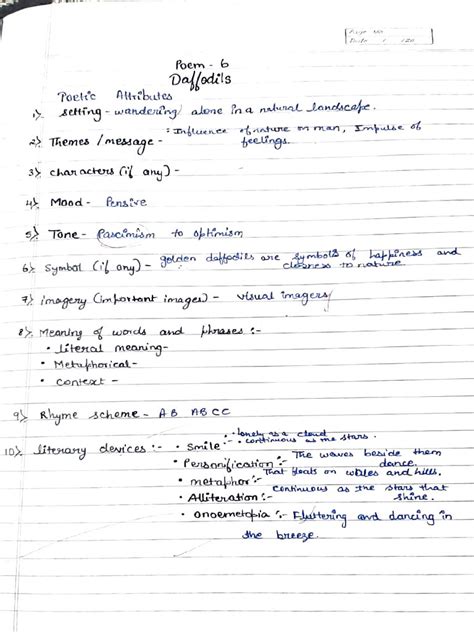 Page No.
Date / /20
Poem - 6
Daffodils
Poetic Attributes
1) setting - wandering alone in a natural landscape.
2) Themes / message - : Influence of nature on man, Impulse of
feelings.
3) characters (if any) -
4) Mood - Pensive
5) Tone - Pascimism to optimism
6) Symbol (if any) - golden daffodils are symbols of happiness and
closeness to nature
7) imagery (important images) - visual imagery
8) Meaning of words and phrases :-
• literal meaning-
• Metaphorical-
• context -
9) Rhyme scheme - AB ABCC
10) literary devices :- • Smile :- • lonely as a cloud
• continuous as the stars.
• Personification :- The waves beside them
dance.
• metaphor :- That floats on vales and hills.
• Alliteration :- continuous as the stars that
shine.
• onoemetopia :- Fluttering and dancing in
the breeze.